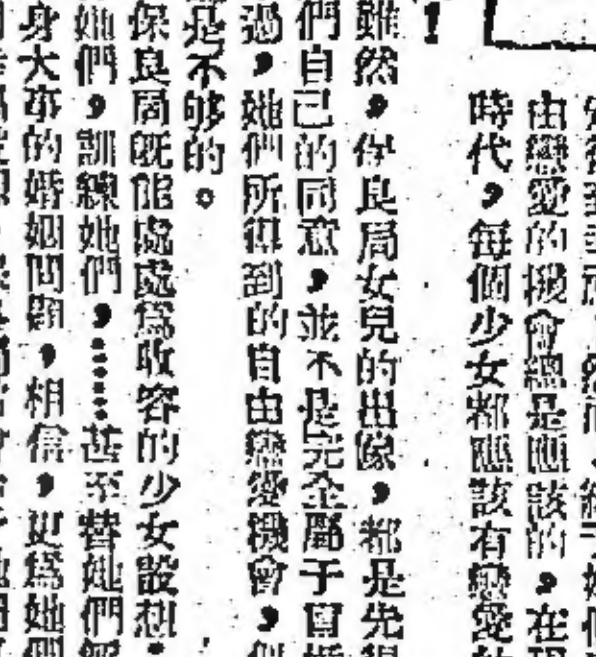 由戀愛的機會總是應該的，在
時代，每個少女都應該有戀愛
！
雖然，保良局女兒的出嫁，都是先
們自己的同意，並不是完全屬于盲
過，她們所得到的自由戀愛機會，
是不够的。
保良局既能處處爲收容的少女設想，
她們，訓練她們，……甚至替她們
身大事的婚姻問題，相信，更爲她們